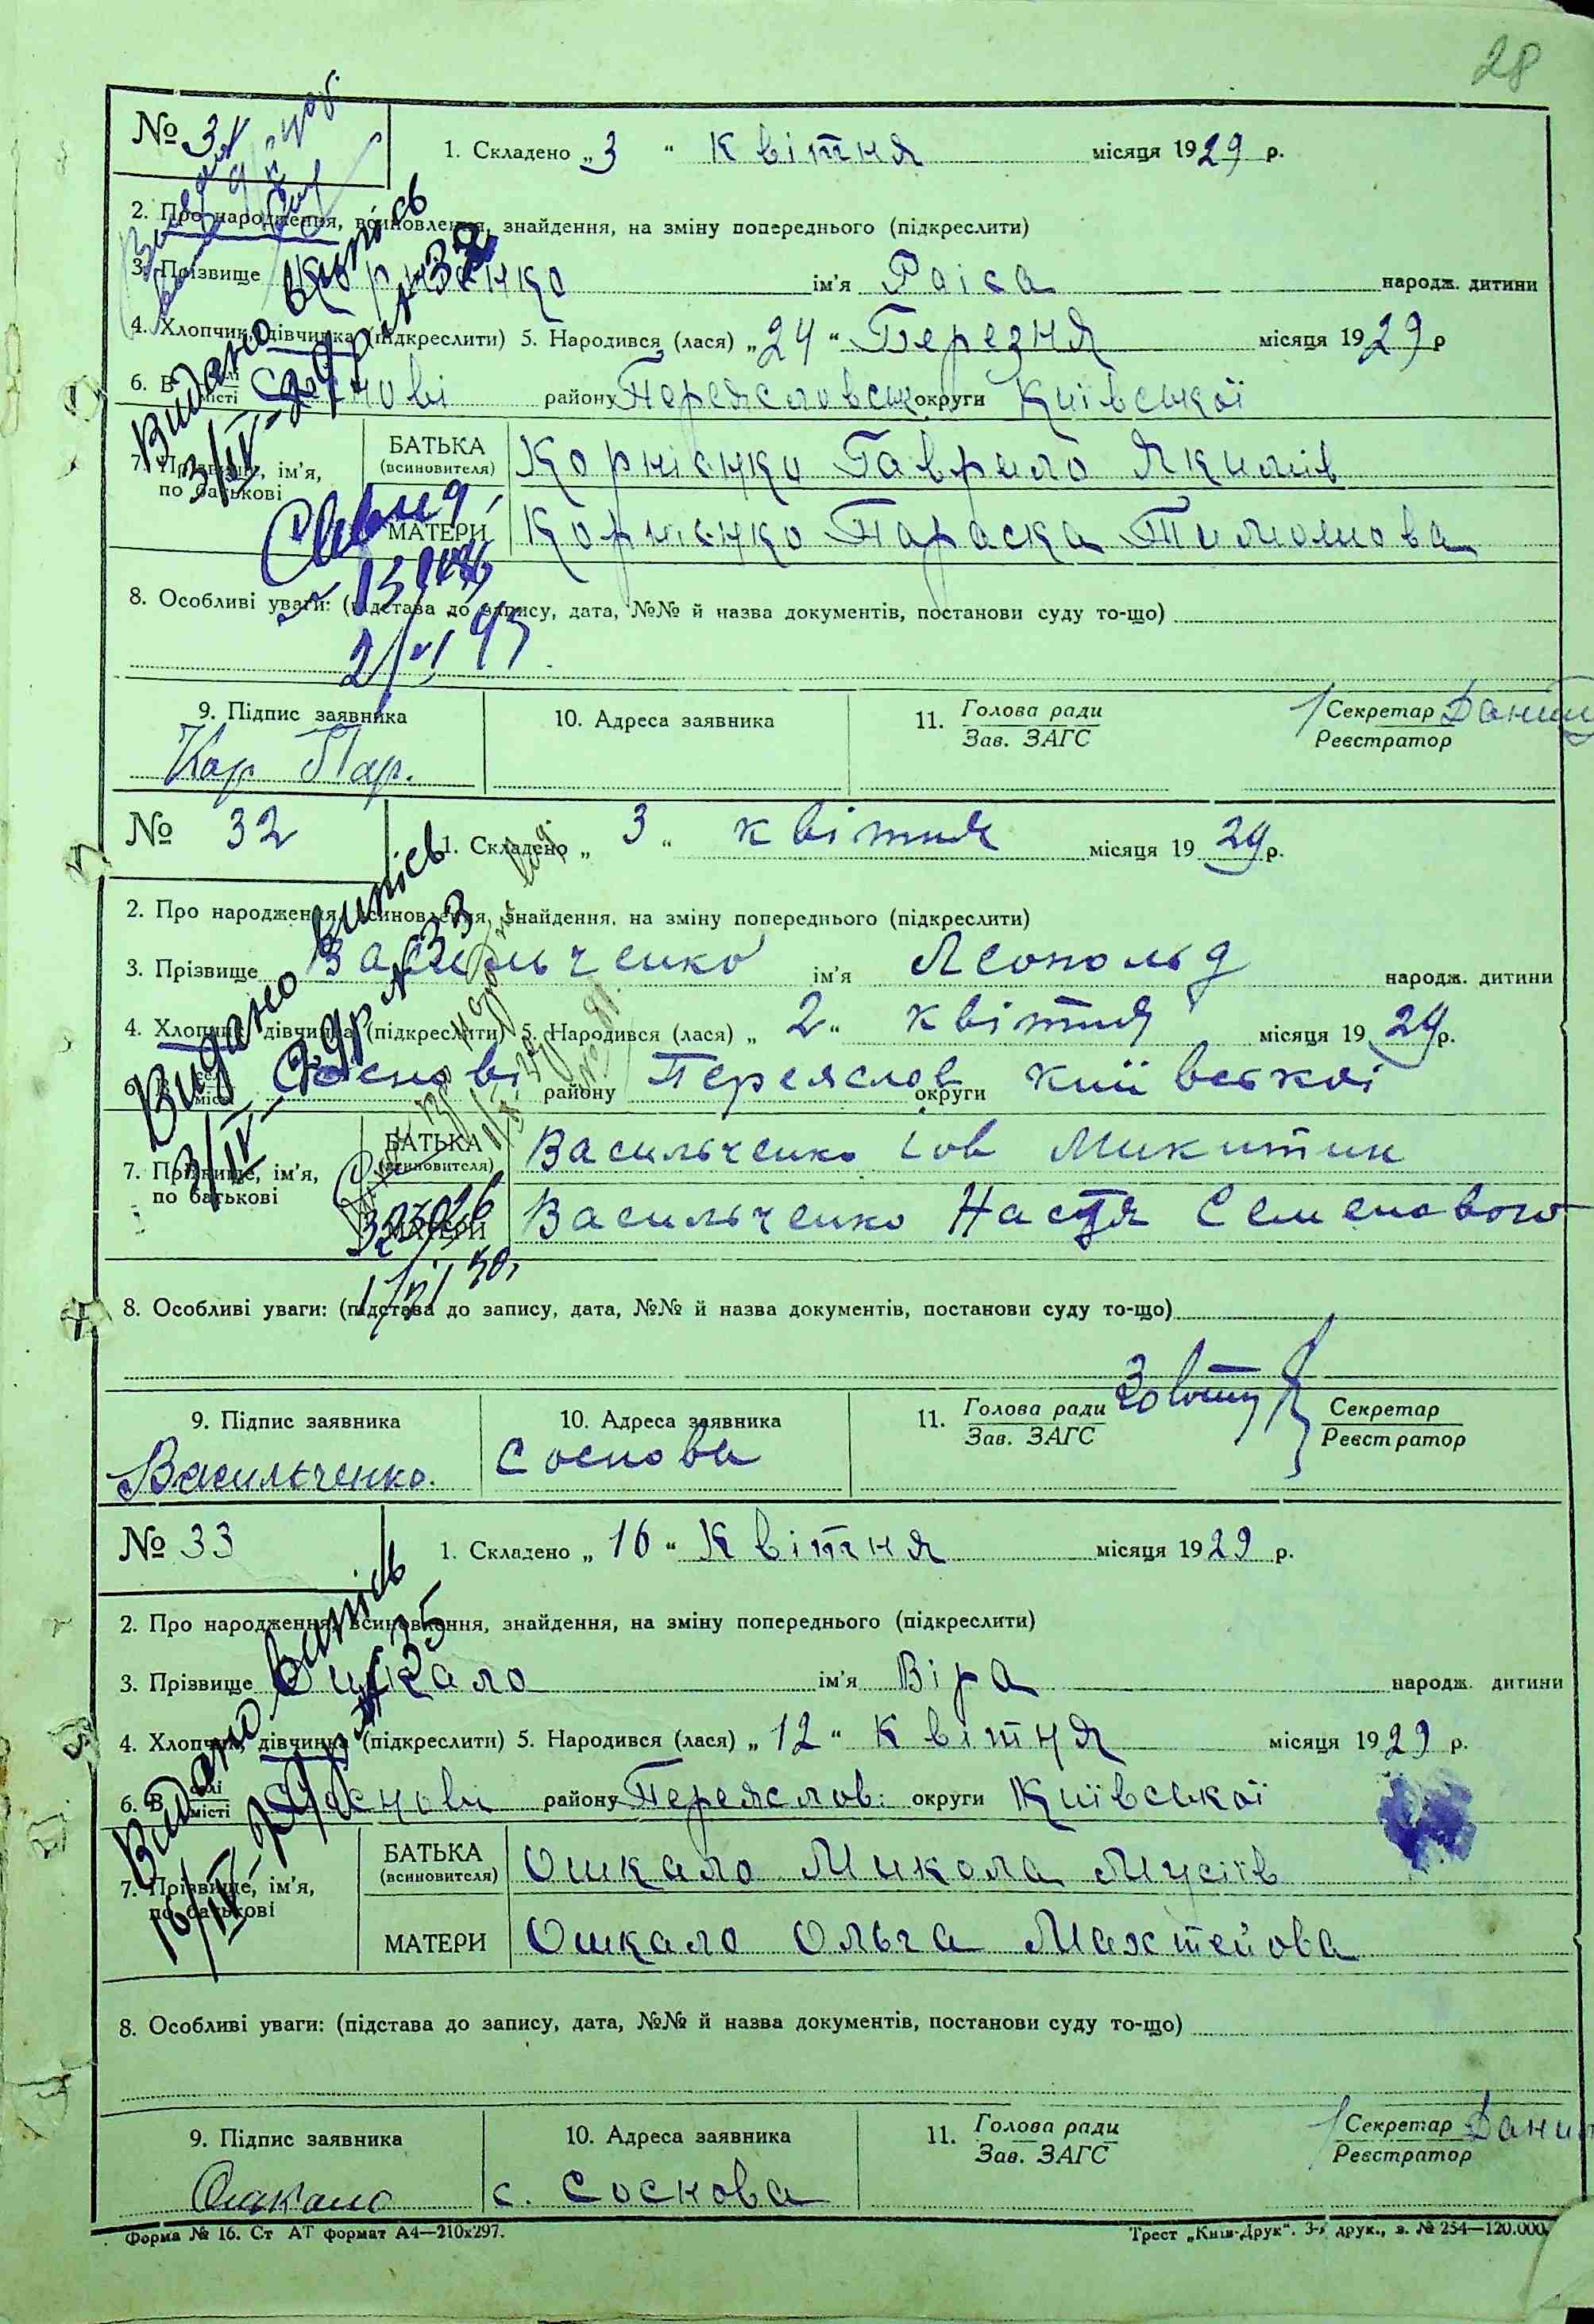 28
№ 31
1. Складено „ 3 “ Квітня місяця 1929 р.
2. Про народження, всиновлення, знайдення, на зміну попереднього (підкреслити)
3. Прізвище Корнієнко ім'я Раіса народж. дитини
4. Хлопчик, дівчинка (підкреслити) 5. Народився (лася) „ 24 “ Березня місяця 1929 р
6. В селі місті Соснові району Переясловськ округи Київської
7. Прізвище, ім'я, по батькові
БАТЬКА (всиновителя) Корнієнко Гаврило Якимів
МАТЕРИ Корнієнко Параска Тимошова
8. Особливі уваги: (підстава до запису, дата, №№ й назва документів, постанови суду то-що)
9. Підпис заявника 10. Адреса заявника 11. Голова ради Зав. ЗАГС Секретар Реєстратор
Кор Пар.
Видано випись
№ 32
1. Складено „ 3 “ квітня місяця 1929 р.
2. Про народження, всиновлення, знайдення, на зміну попереднього (підкреслити)
3. Прізвище Васильченко ім'я Леопольд народж. дитини
4. Хлопчик, дівчинка (підкреслити) 5. Народився (лася) „ 2 “ квітня місяця 1929 р.
6. В селі місті Соснові району Переяслов округи київської
7. Прізвище, ім'я, по батькові
БАТЬКА (всиновителя) Васильченко Іов Микитин
МАТЕРИ Васильченко Настя Семенового
8. Особливі уваги: (підстава до запису, дата, №№ й назва документів, постанови суду то-що)
9. Підпис заявника 10. Адреса заявника 11. Голова ради Зав. ЗАГС Секретар Реєстратор
Васильченко. Соснова
Видано випись
№ 33
1. Складено „ 16 “ Квітня місяця 1929 р.
2. Про народження, всиновлення, знайдення, на зміну попереднього (підкреслити)
3. Прізвище Ошкало ім'я Віра народж. дитини
4. Хлопчик, дівчинка (підкреслити) 5. Народився (лася) „ 12 “ Квітня місяця 1929 р.
6. В селі місті Соснові району Переяслов. округи Київської
7. Прізвище, ім'я, по батькові
БАТЬКА (всиновителя) Ошкало Микола Мусіїв
МАТЕРИ Ошкало Ольга Махтейова
8. Особливі уваги: (підстава до запису, дата, №№ й назва документів, постанови суду то-що)
9. Підпис заявника 10. Адреса заявника 11. Голова ради Зав. ЗАГС Секретар Реєстратор
Ошкало с. Соснова
Видано випись
Форма № 16. Ст АТ формат А4—210х297. Трест „Київ-Друк“. 3-я друк., з. № 254—120.000.